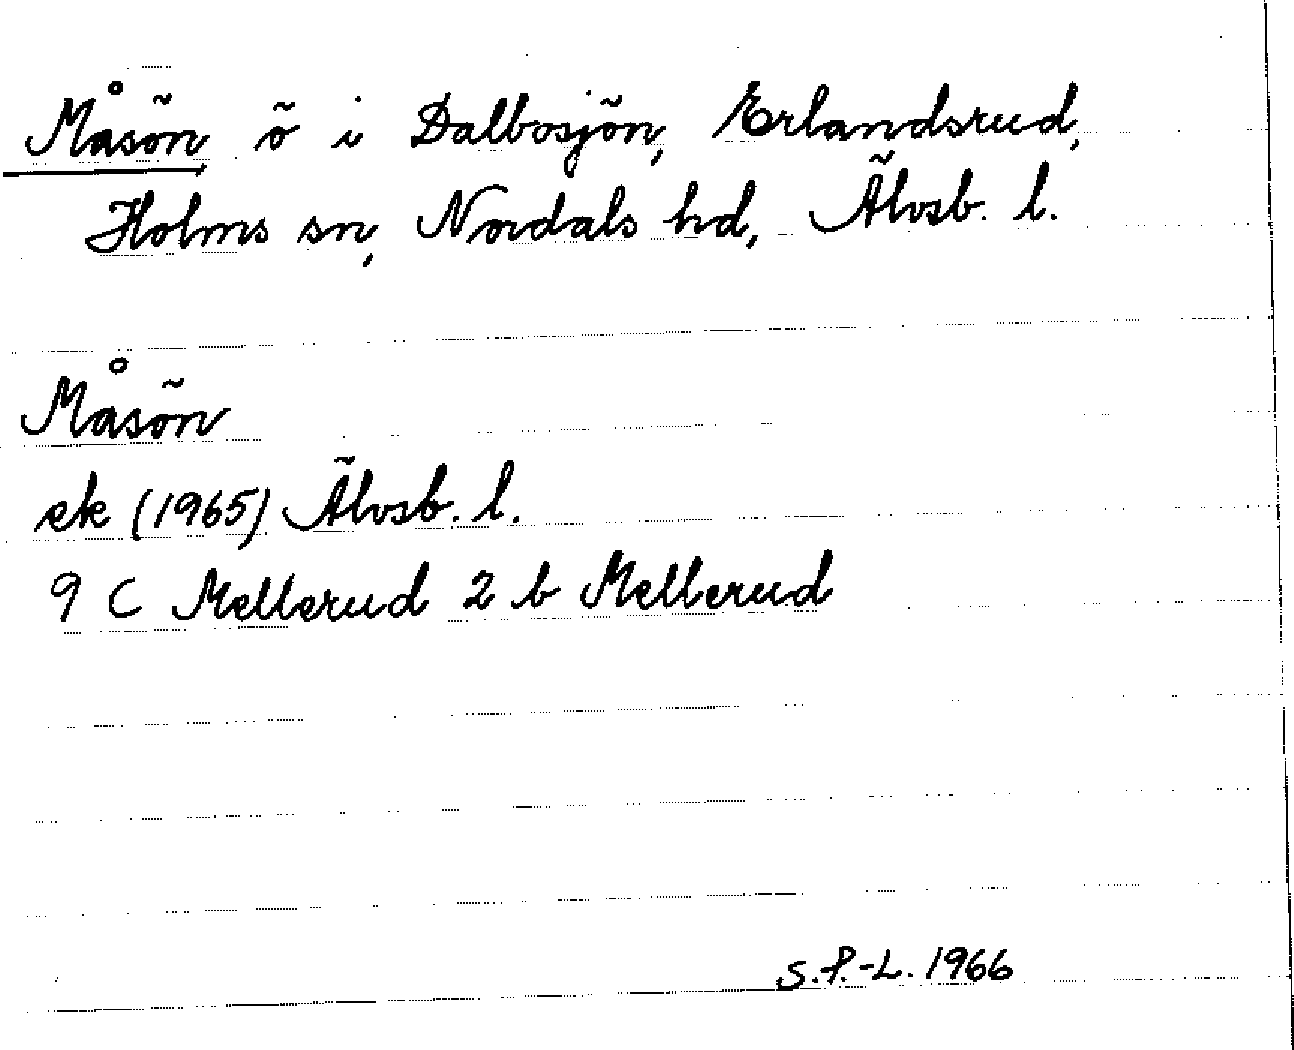 Måsön, ö i Dalbosjön, Erlandsrud,
Holms sn, Nordals hd, Älvsb. l.
Måsön
ek (1965) Älvsb. l.
9 C Mellerud 2 b Mellerud
S.P.-L. 1966